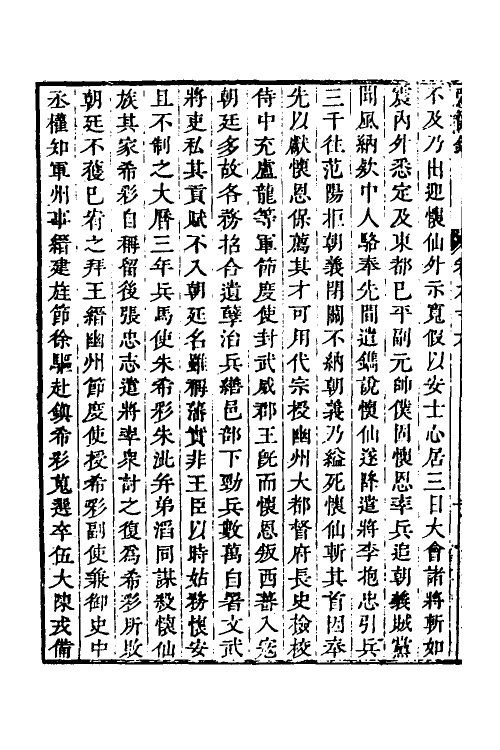 不及乃出迎懷仙外示寬假以安士心居三日大會諸將斬如
震內外悉定及東都已平副元帥僕固懷恩率兵追朝義賊黨
聞風納欵中人駱奉先間遣鐫說懷仙遂降遣將李抱忠引兵
三千往范陽拒朝義閉關不納朝義乃縊死懷仙斬其首因奉
先以獻懷恩保薦其才可用代宗授幽州大都督府長史檢校
侍中充盧龍等軍節度使封武威郡王旣而懷恩叛西蕃入寇
朝廷多故各務招合遺孽治兵繕邑部下勁兵數萬自署文武
將吏私其貢賦不入朝廷名雖稱藩實非王臣以時姑務懷安
且不制之大曆三年兵馬使朱希彩朱泚弟滔同謀殺懷仙
族其家希彩自稱留後張忠志遣將率衆討之復爲希彩所敗
朝廷不獲巳宥之拜王縉幽州節度使授希彩副使兼御史中
丞權知軍州事縉建旌節徐驅赴鎮希彩蒐選卒伍大陳戎備